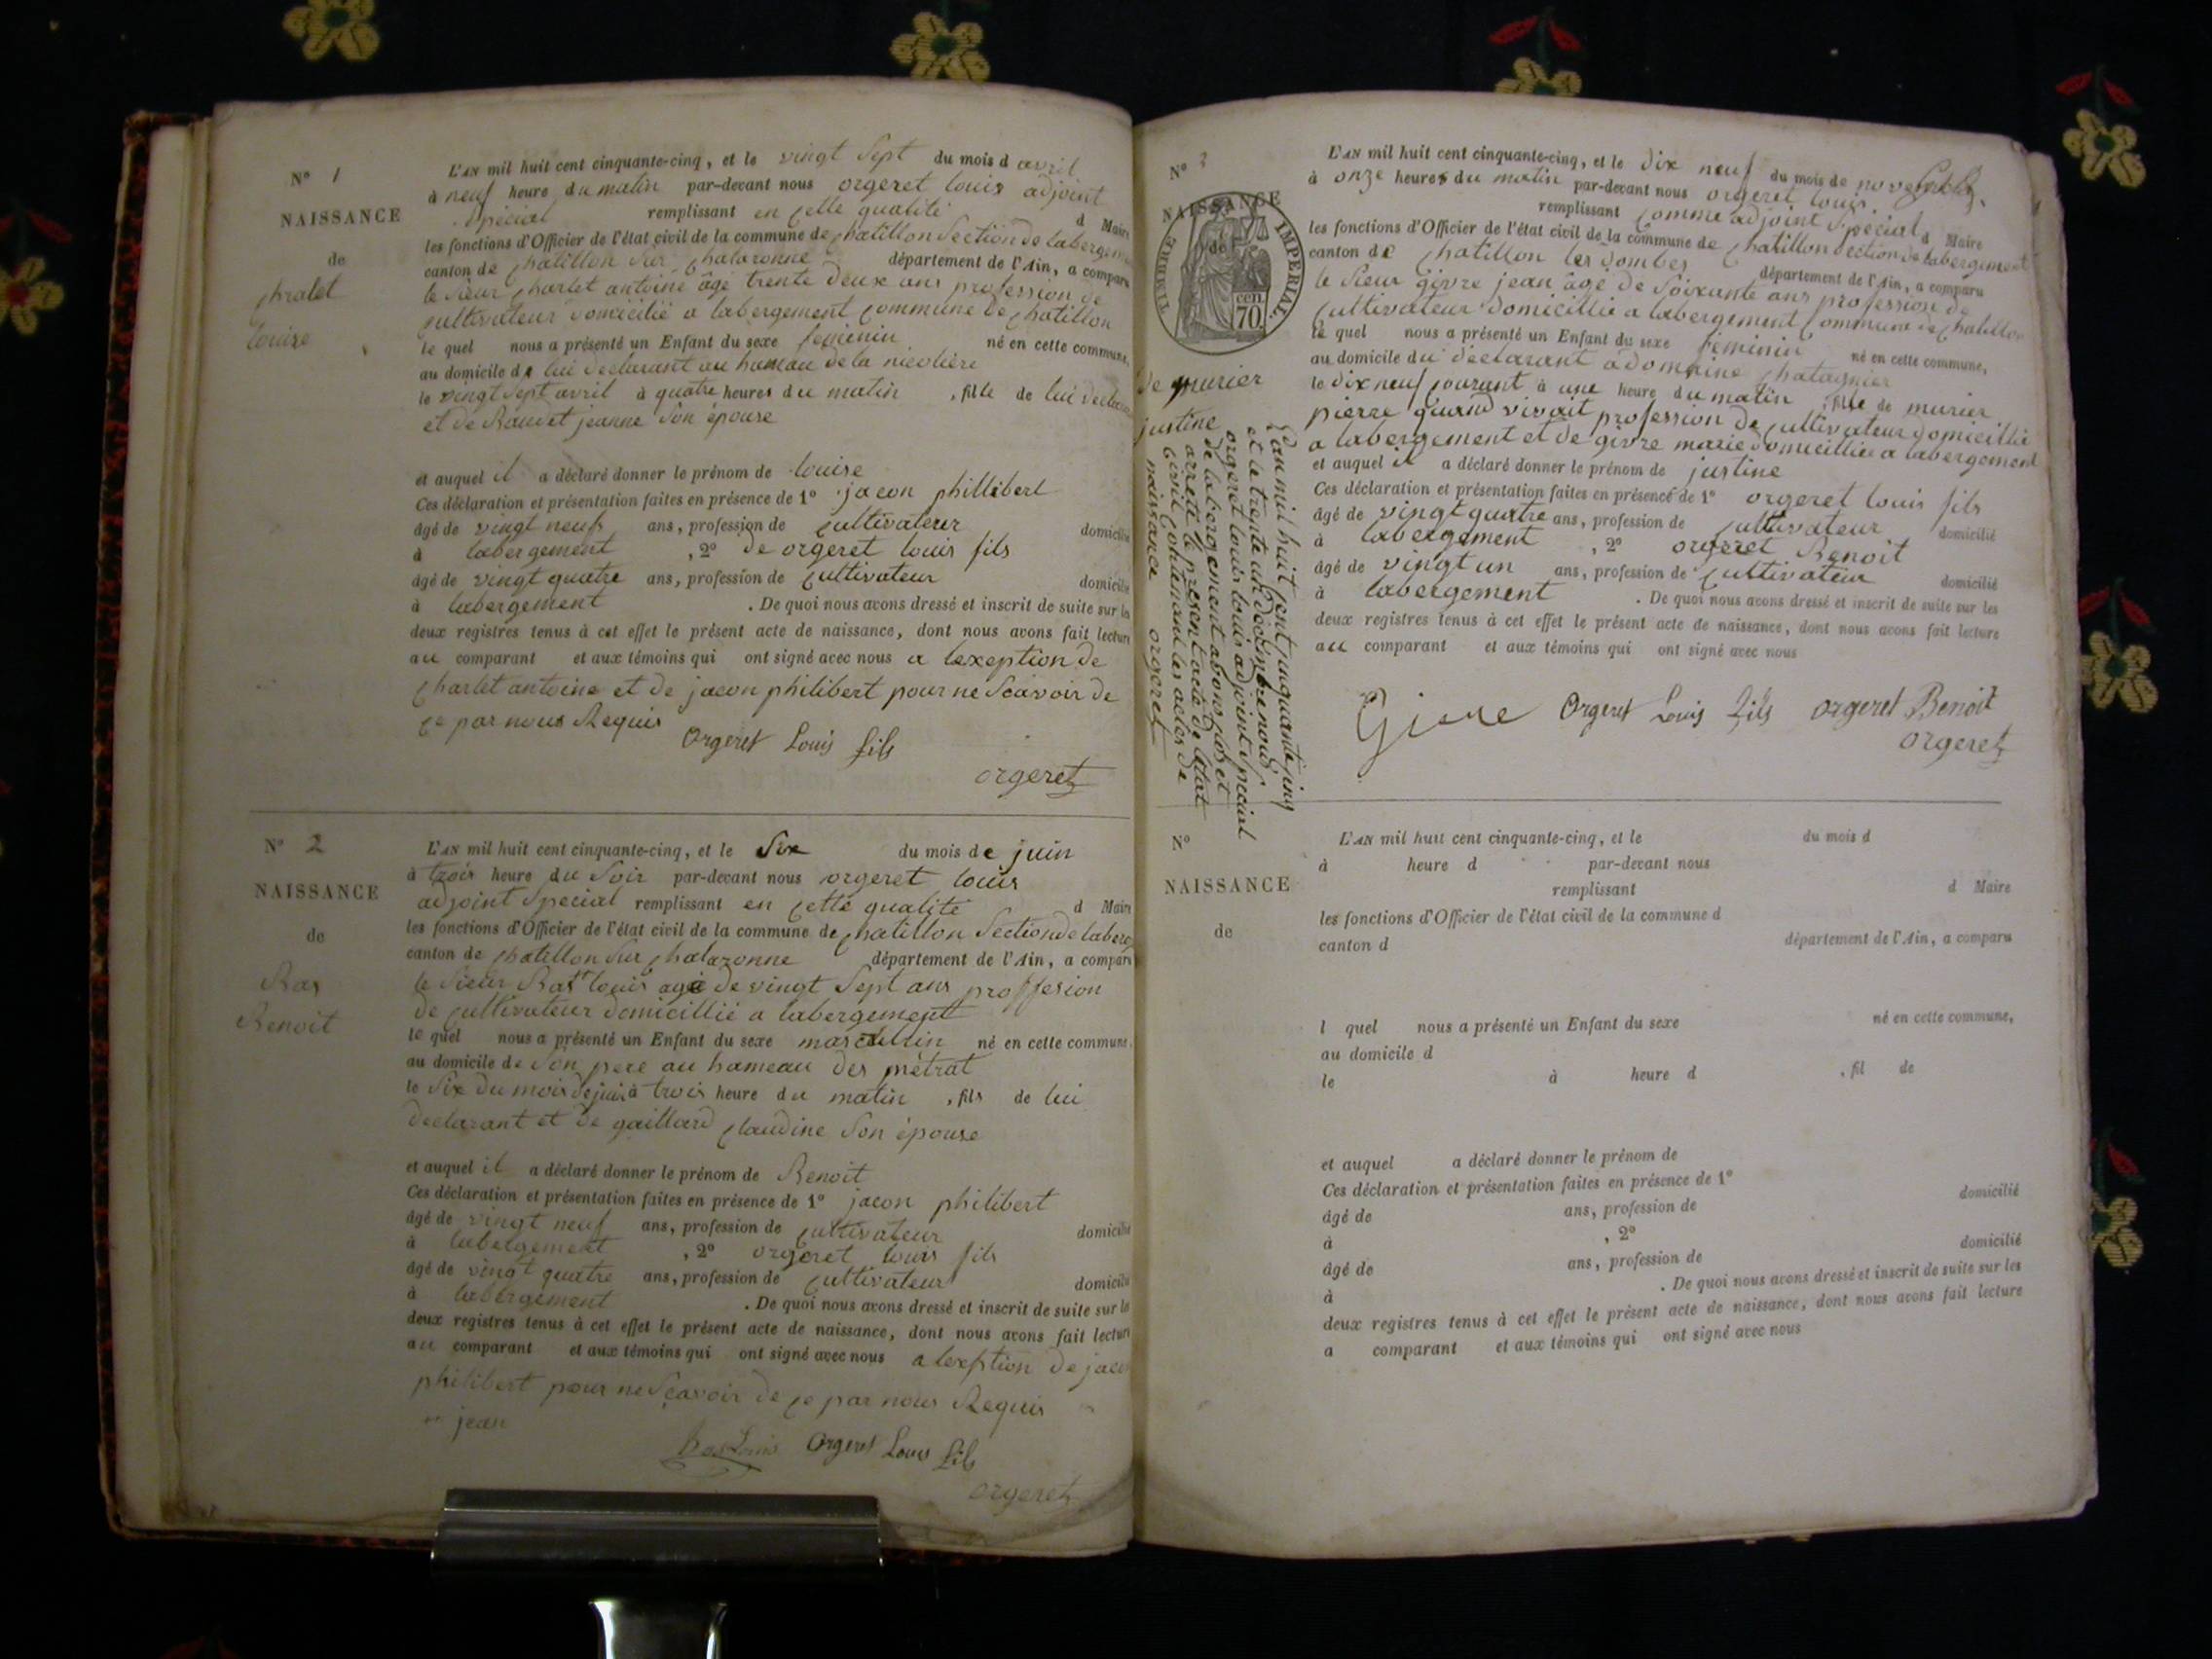 N° 1
NAISSANCE
de
Chalet
Louise
L'AN mil huit cent cinquante-cinq, et le vingt Sept du mois d avril
à neuf heure du matin par-devant nous orgeret louis adjoint
Special remplissant en cette qualité d Maire
les fonctions d'Officier de l'état civil de la commune de chatillon Section de labergem
canton de chatillon Sur chalaronne département de l'Ain, a comparu
le Sieur charlet antoine âgé trente deux ans profession de
cultivateur domicilié a labergement commune de chatillon
le quel nous a présenté un Enfant du sexe feminin né en cette commune,
au domicile de lui declarant au hameau de la nicolière
le vingt Sept avril à quatre heures du matin , fille de lui declara
et de Raudet jeanne Son épouse
et auquel il a déclaré donner le prénom de louise
Ces déclaration et présentation faites en présence de 1° jacon phillibert
âgé de vingt neuf ans, profession de cultivateur domicilié
à labergement , 2° de orgeret louis fils
âgé de vingt quatre ans, profession de cultivateur domicilié
à labergement . De quoi nous avons dressé et inscrit de suite sur les
deux registres tenus à cet effet le présent acte de naissance, dont nous avons fait lecture
au comparant et aux témoins qui ont signé avec nous a lexeption de
charlet antoine et de jacon philibert pour ne Scavoir de
ce par nous Requis
Orgeret Louis fils
orgeret
N° 2
NAISSANCE
de
Ras
Benoit
L'AN mil huit cent cinquante-cinq, et le Six du mois de juin
à trois heure du Soir par-devant nous orgeret louis
adjoint Special remplissant en cette qualité d Maire
les fonctions d'Officier de l'état civil de la commune de chatillon Section de laberg
canton de chatillon Sur chalaronne département de l'Ain, a comparu
le Sieur Ras louis agé de vingt Sept ans proffesion
de cultivateur domicillié a labergement
le quel nous a présenté un Enfant du sexe masculin né en cette commune,
au domicile de Son pere au hameau des métrat
le Six du mois de juin à trois heure du matin , fils de lui
declarant et de gaillard claudine Son épouse
et auquel il a déclaré donner le prénom de Benoit
Ces déclaration et présentation faites en présence de 1° jacon philibert
âgé de vingt neuf ans, profession de cultivateur domicilié
à labergement , 2° orgeret louis fils
âgé de vingt quatre ans, profession de cultivateur domicilié
à labergement . De quoi nous avons dressé et inscrit de suite sur le
deux registres tenus à cet effet le présent acte de naissance, dont nous avons fait lecture
au comparant et aux témoins qui ont signé avec nous a lexeption de jacon
philibert pour ne Scavoir de ce par nous Requis
jean
Ras Louis Orgeret Louis fils
orgeret
N° 3
NAISSANCE
de
TIMBRE IMPERIAL
70 cen.
de murier
justine
L'AN mil huit cent cinquante-cinq, et le dix neuf du mois de novembre
à onze heures du matin par-devant nous orgeret louis
remplissant comme adjoint Special d Maire
les fonctions d'Officier de l'état civil de la commune de chatillon Section de labergement
canton de chatillon les dombes département de l'Ain, a comparu
le Sieur givre jean agé de Soixante ans profession de
cultivateur domicillié a labergement commune de chatillon
le quel nous a présenté un Enfant du sexe feminin né en cette commune,
au domicile du declarant a domaine chatagnier
le dix neuf courant à une heure du matin , fille de murier
pierre quand vivait profession de cultivateur domicillié
a labergement et de givre marie domicilliée a labergement
et auquel il a déclaré donner le prénom de justine
Ces déclaration et présentation faites en présence de 1° orgeret louis fils
âgé de vingt quatre ans, profession de cultivateur domicilié
à labergement , 2° orgeret Benoit
âgé de vingt un ans, profession de cultivateur domicilié
à labergement . De quoi nous avons dressé et inscrit de suite sur les
deux registres tenus à cet effet le présent acte de naissance, dont nous avons fait lecture
au comparant et aux témoins qui ont signé avec nous
Givre Orgeret Louis fils orgeret Benoit
orgeret
Lan mil huit cent cinquante cinq
et le trente un decembre nous
orgeret louis louis adjoint special
de labergement avons clos et
arreté le présent acte de létat
civil contenant les actes de
naissance orgeret
N°
NAISSANCE
de
L'AN mil huit cent cinquante-cinq, et le du mois d
à heure d par-devant nous
remplissant d Maire
les fonctions d'Officier de l'état civil de la commune d
canton d département de l'Ain, a comparu
l quel nous a présenté un Enfant du sexe né en cette commune,
au domicile d
le à heure d , fil de
et auquel a déclaré donner le prénom de
Ces déclaration et présentation faites en présence de 1°
âgé de ans, profession de domicilié
à , 2°
âgé de ans, profession de domicilié
à . De quoi nous avons dressé et inscrit de suite sur les
deux registres tenus à cet effet le présent acte de naissance, dont nous avons fait lecture
a comparant et aux témoins qui ont signé avec nous